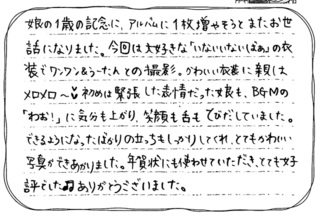 娘の1歳の記念に、アルバムに1枚増やそうとまたお世
話になりました。今回は大好きな「いないいないばあ」の衣
装でワンワン&うーたんとの撮影。かわいい衣装に親は
メロメロ〜♥ 初めは緊張した表情だった娘も、BGMの
「わお!」に気分も上がり、笑顔も舌もでびだしていました。
できるようになったばかりの立っちもしっかりしてくれ、とてもかわいい
写真ができあがりました。年賀状にも使わせていただき、とても好
評でした♫ ありがとうございました。